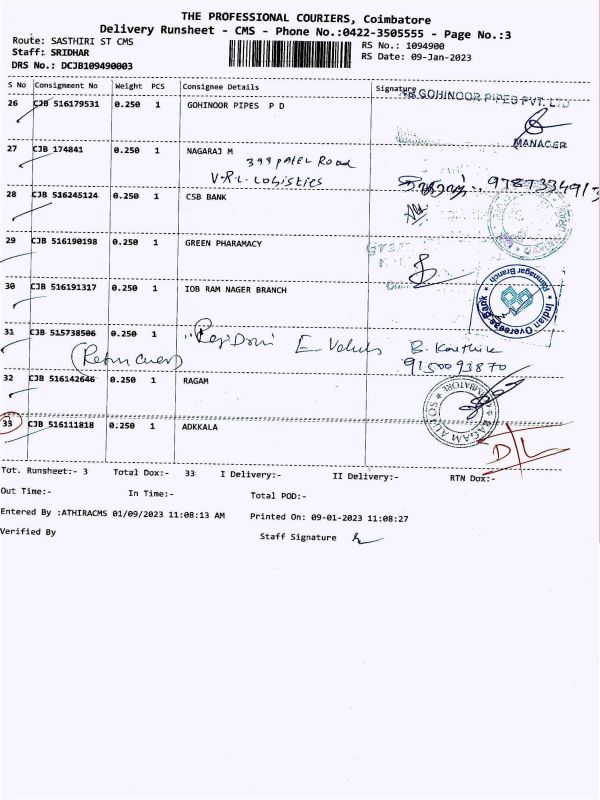 THE PROFESSIONAL COURIERS, Coimbatore
Delivery Runsheet - CMS - Phone No.:0422-3505555 - Page No.:3
Route: SASTHIRI ST CMS RS No.: 1094900
Staff: SRIDHAR RS Date: 09-Jan-2023
DRS No.: DCJB109490003
S No Consignment No Weight PCS Consignee Details Signature
26 CJB 516179531 0.250 1 GOHINOOR PIPES P D GOHINOOR PIPES PVT. LTD
MANAGER
27 CJB 174841 0.250 1 NAGARAJ M
399 PATEL Road
V.R.L. Logistics
28 CJB 516245124 0.250 1 CSB BANK
29 CJB 516190198 0.250 1 GREEN PHARAMACY
30 CJB 516191317 0.250 1 IOB RAM NAGER BRANCH
Indian Overseas Bank
Ramnagar Branch
31 CJB 515738506 0.250 1
B. Karthik
9150093870
32 CJB 516142646 0.250 1 RAGAM
33 CJB 516111818 0.250 1 ADKKALA
D/L
Tot. Runsheet:- 3 Total Dox:- 33 I Delivery:- II Delivery:- RTN Dox:-
Out Time:- In Time:- Total POD:-
Entered By :ATHIRACMS 01/09/2023 11:08:13 AM Printed On: 09-01-2023 11:08:27
Verified By Staff Signature